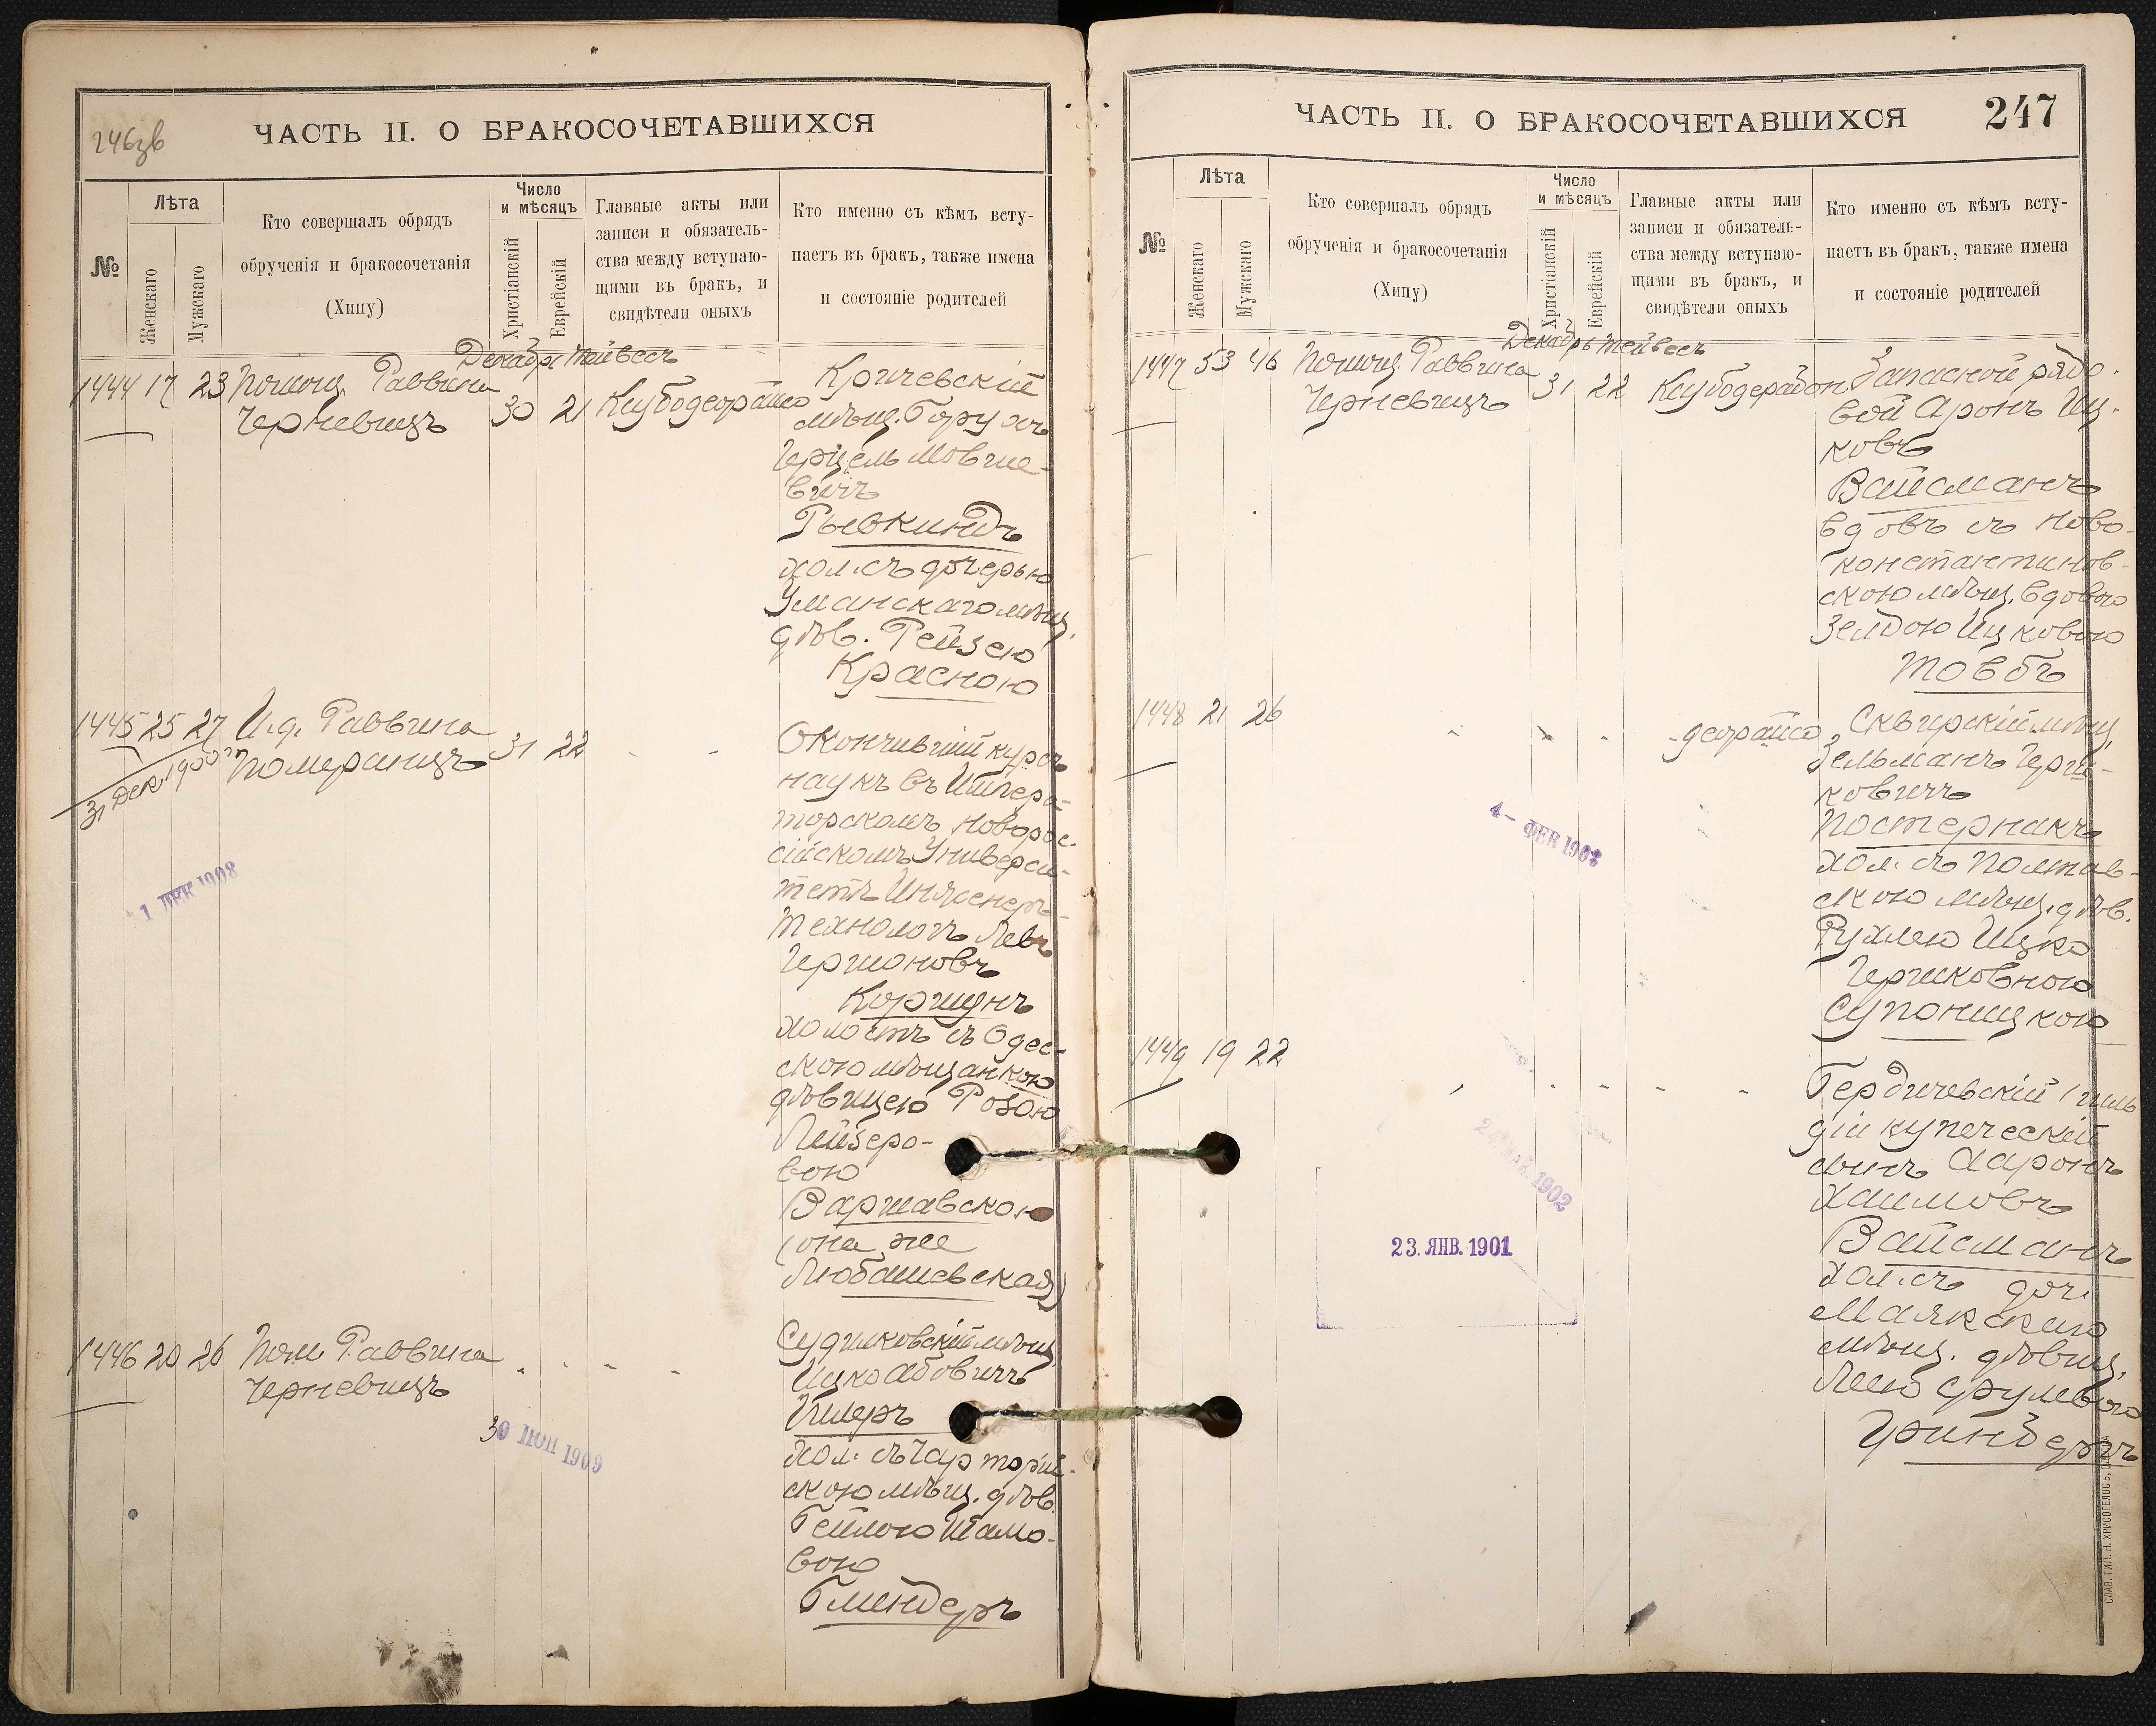 246зв
ЧАСТЬ II. О БРАКОСОЧЕТАВШИХСЯ
№
Лѣта
Женскаго
Мужскаго
Кто совершалъ обрядъ
обрученія и бракосочетанія
(Хипу)
Число
и мѣсяцъ
Христіанскій
Еврейскій
Главные акты или
записи и обязатель-
ства между вступаю-
щими въ бракъ, и
свидѣтели оныхъ
Кто именно съ кѣмъ всту-
паетъ въ бракъ, также имена
и состояніе родителей
Декабрь Тейвесъ
1444 17 23 Помощ. Раввина
Черневицъ
30 21
Кричевскій
мѣщ. Борухъ
Герцель Мовше-
вичъ
Рывкиндъ
хол. съ дочерью
Уманскаго мѣщ.
дѣв. Рейзею
Красною
1445 25 27 И.д. Раввина
Померанцъ
31 22
31 Дек. 1900
Окончившій курсъ
наукъ въ Импера-
торскомъ Новорос-
сійскомъ Универси-
тетѣ Инженеръ-
Технологъ Левъ
Гершоновъ
Коршунъ
холостъ съ Одес-
скою мѣщанкою
дѣвицею Розою
Лейзеро-
вою
Варшавскою
(она же
Любашевская)
1 ДЕК 1908
1446 20 26 Пом. Раввина
Черневицъ
Судилковскій мѣщ.
Ицко Абовичъ
хол. съ Чарторій-
скою мѣщ. дѣв.
Бейлою
вою
30 ІЮН 1909
ЧАСТЬ II. О БРАКОСОЧЕТАВШИХСЯ
247
№
Лѣта
Женскаго
Мужскаго
Кто совершалъ обрядъ
обрученія и бракосочетанія
(Хипу)
Число
и мѣсяцъ
Христіанскій
Еврейскій
Главные акты или
записи и обязатель-
ства между вступаю-
щими въ бракъ, и
свидѣтели оныхъ
Кто именно съ кѣмъ всту-
паетъ въ бракъ, также имена
и состояніе родителей
Декабрь Тейвесъ
1447 53 46 Помощ. Раввина
Черневицъ
31 22
Запасной рядо-
вой Аронъ Иц-
ковъ
Вайсманъ
вдовъ съ Ново-
константинов-
скою мѣщ. вдовою
Зелдою Ицковою
Товбъ
1448 21 26
Сквирскій мѣщ.
Зельманъ Герш-
ковичъ
Постернакъ
хол. съ Полтав-
скою мѣщ. дѣв.
Рухлею Ицко
Гершковною
Супоницкою
4 - ФЕВ 1908
1449 19 22
Бердичевскій 1 гиль
діи купеческій
сынъ Ааронъ
Хаимовъ
Вайсманъ
хол. съ доч.
Маякскаго
мѣщ. дѣвиц.
Леею Срулевою
Гринберъ
1902
23. ЯНВ. 1901
СЛАВ. ТИП. Н. ХРИСОГЕЛОСЪ, ОДЕССА